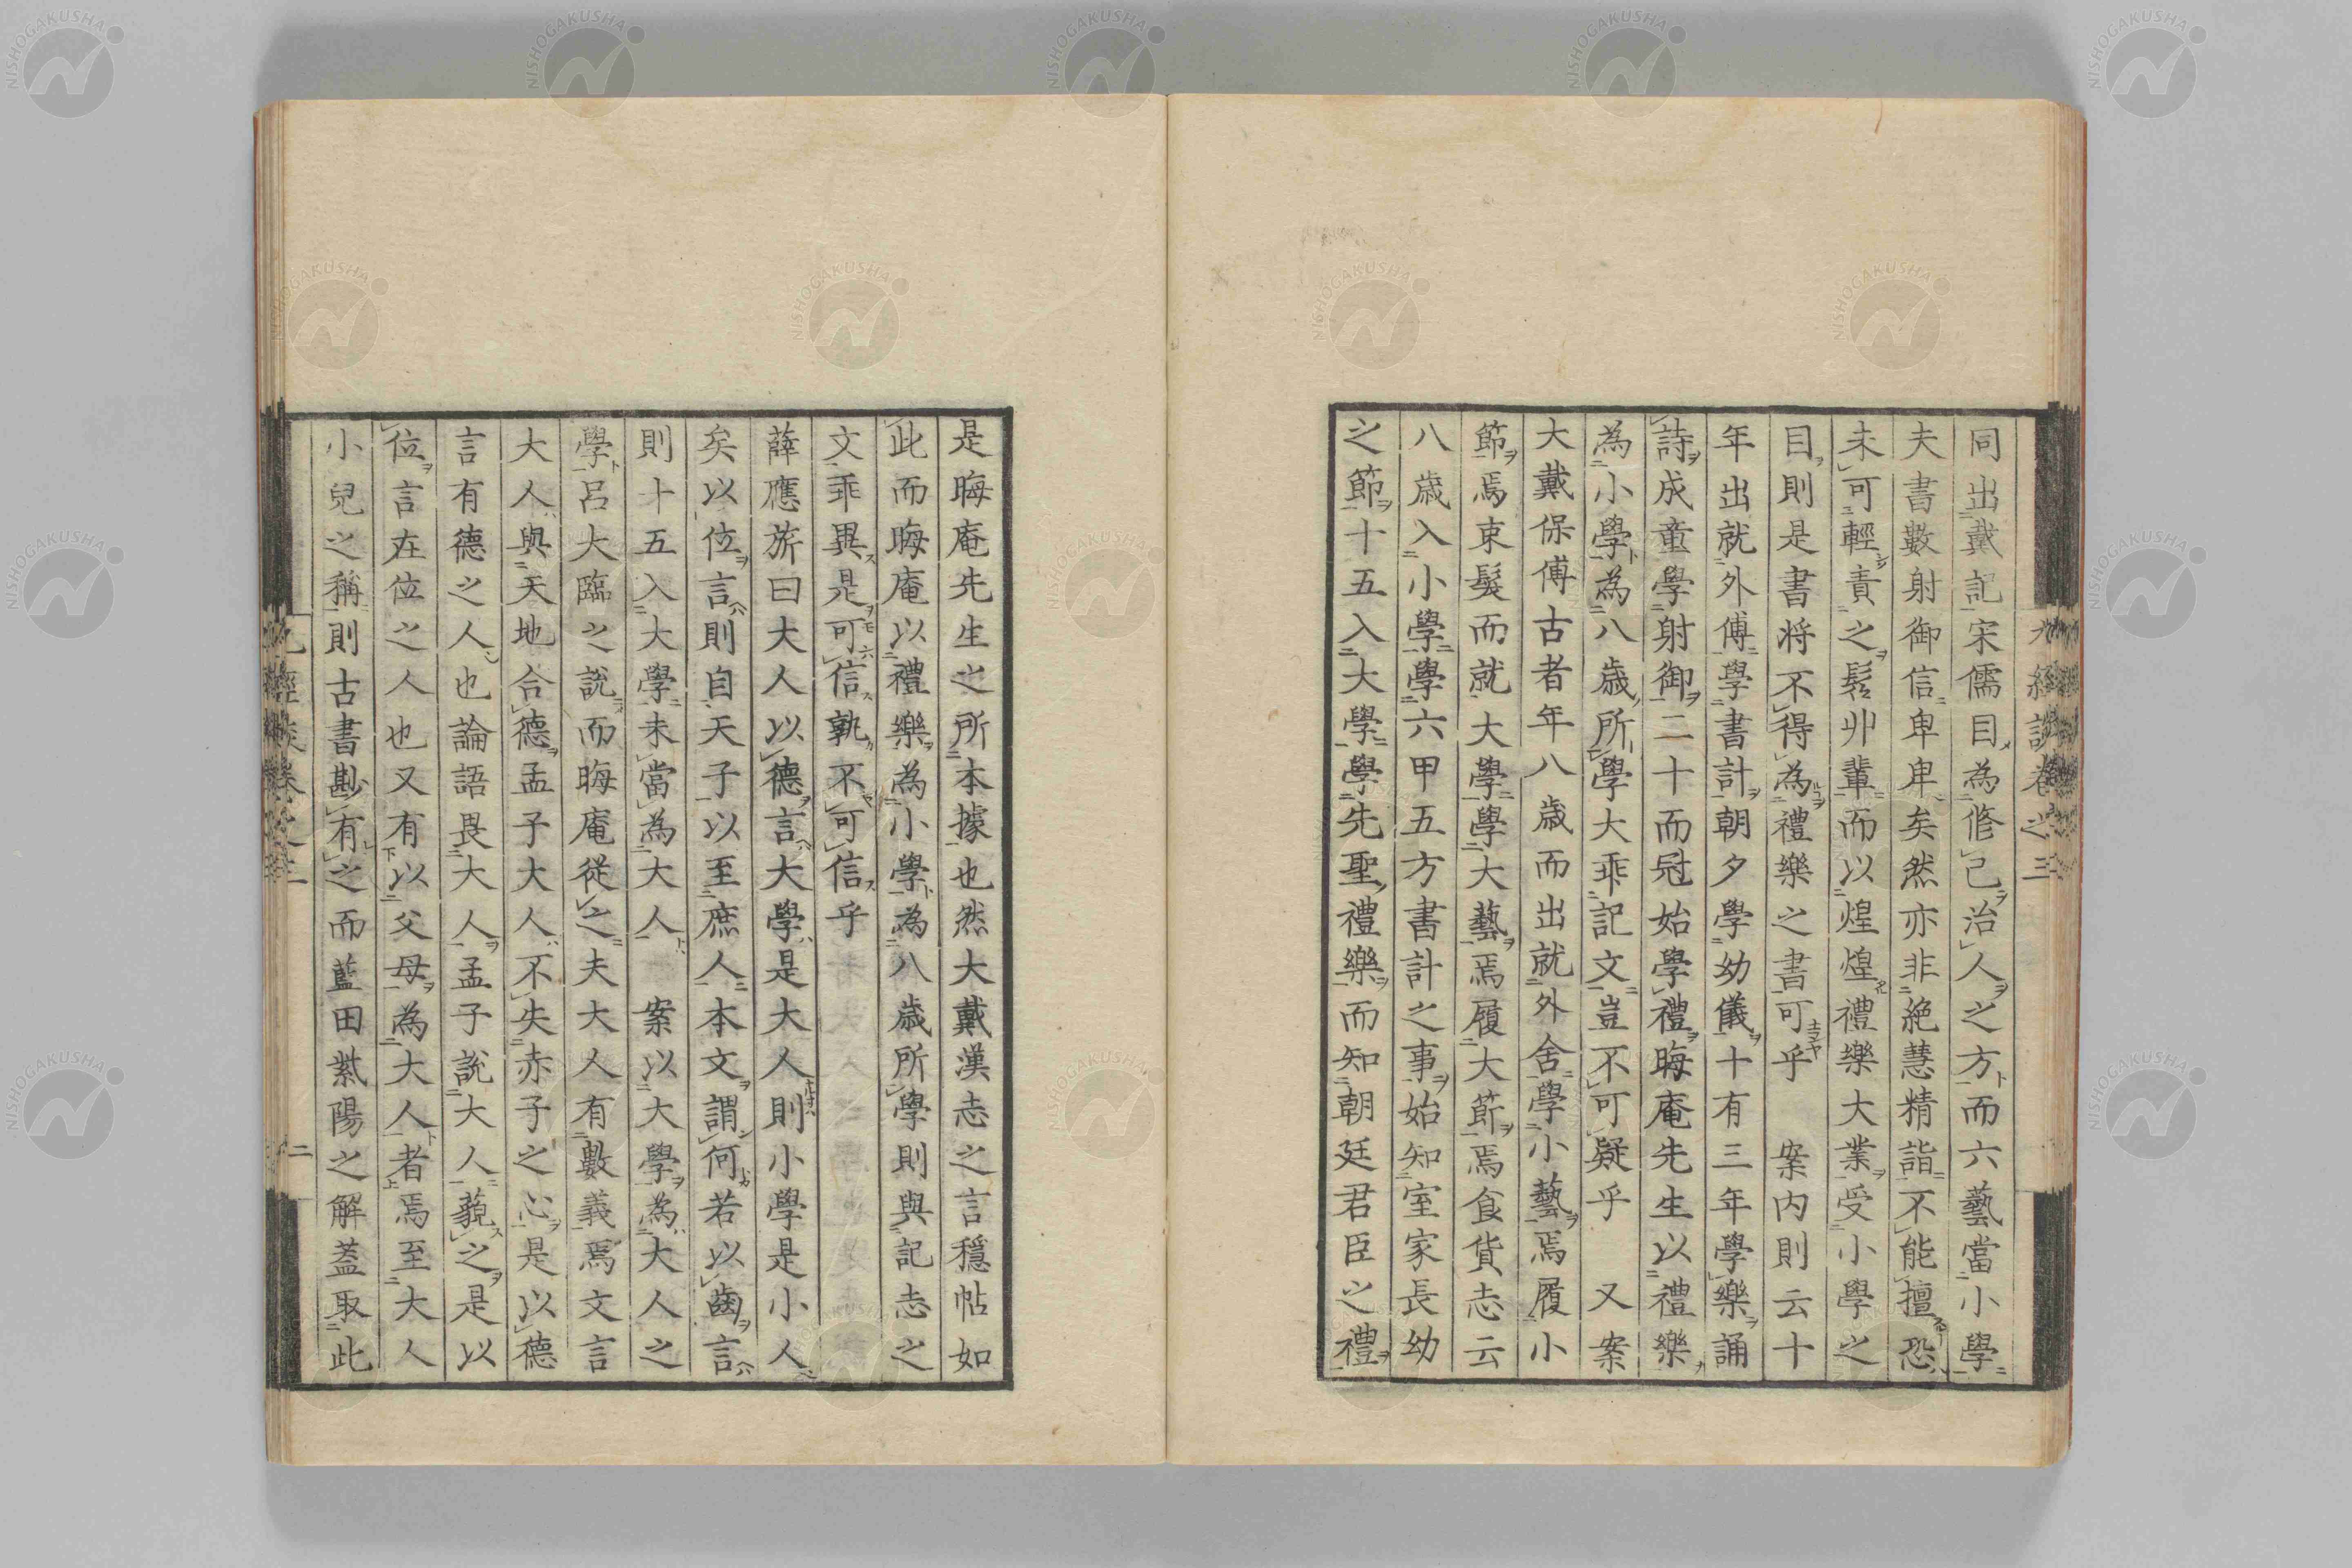 同出戴記宋儒目為修己治人之方而六藝當小學
夫書數射御信卑卑矣然亦非絶慧精詣不能擅恐
未可輕責之髫丱輩而以煌煌禮樂大業受小學之
目則是書將不得為禮樂之書可乎　案内則云十
年出就外傅學書計朝夕學幼儀十有三年學樂誦
詩成童學射御二十而冠始學禮晦庵先生以禮樂
為小學為八歳所學大乖記文豈不可疑乎　又案
大戴保傅古者年八歳而出就外舍學小藝焉履小
節焉束髮而就大學學大藝焉履大節焉食貨志云
八歳入小學學六甲五方書計之事始知室家長幼
之節十五入大學學先聖禮樂而知朝廷君臣之禮
是晦庵先生之所本據也然大戴漢志之言穩帖如
此而晦庵以禮樂為小學為八歳所學則與記志之
文乖異是可信孰不可信乎
薛應旂曰大人以德言大學是大人則小學是小人
矣以位言則自天子以至庶人本文謂何若以齒言
則十五入大學未當為大人　案以大學為大人之
學呂大臨之說而晦庵從之夫大人有數義焉文言
大人與天地合德孟子大人不失赤子之心是以德
言有德之人也論語畏大人孟子說大人藐之是以
位言在位之人也又有以父母為大人者焉至大人
小兒之稱則古書尠有之而藍田紫陽之解蓋取此
九經談卷之三
二
NISHOGAKUSHA